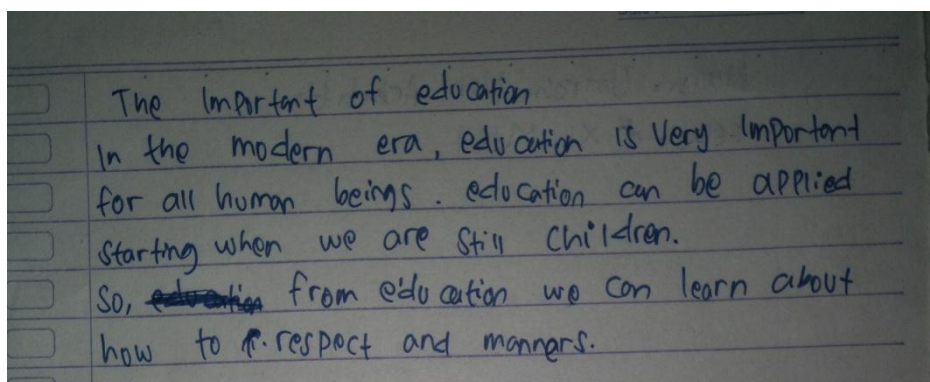 The Important of education
In the modern era, education is very important
for all human beings. education can be applied
starting when we are still children.
So, from education we can learn about
how to respect and manners.